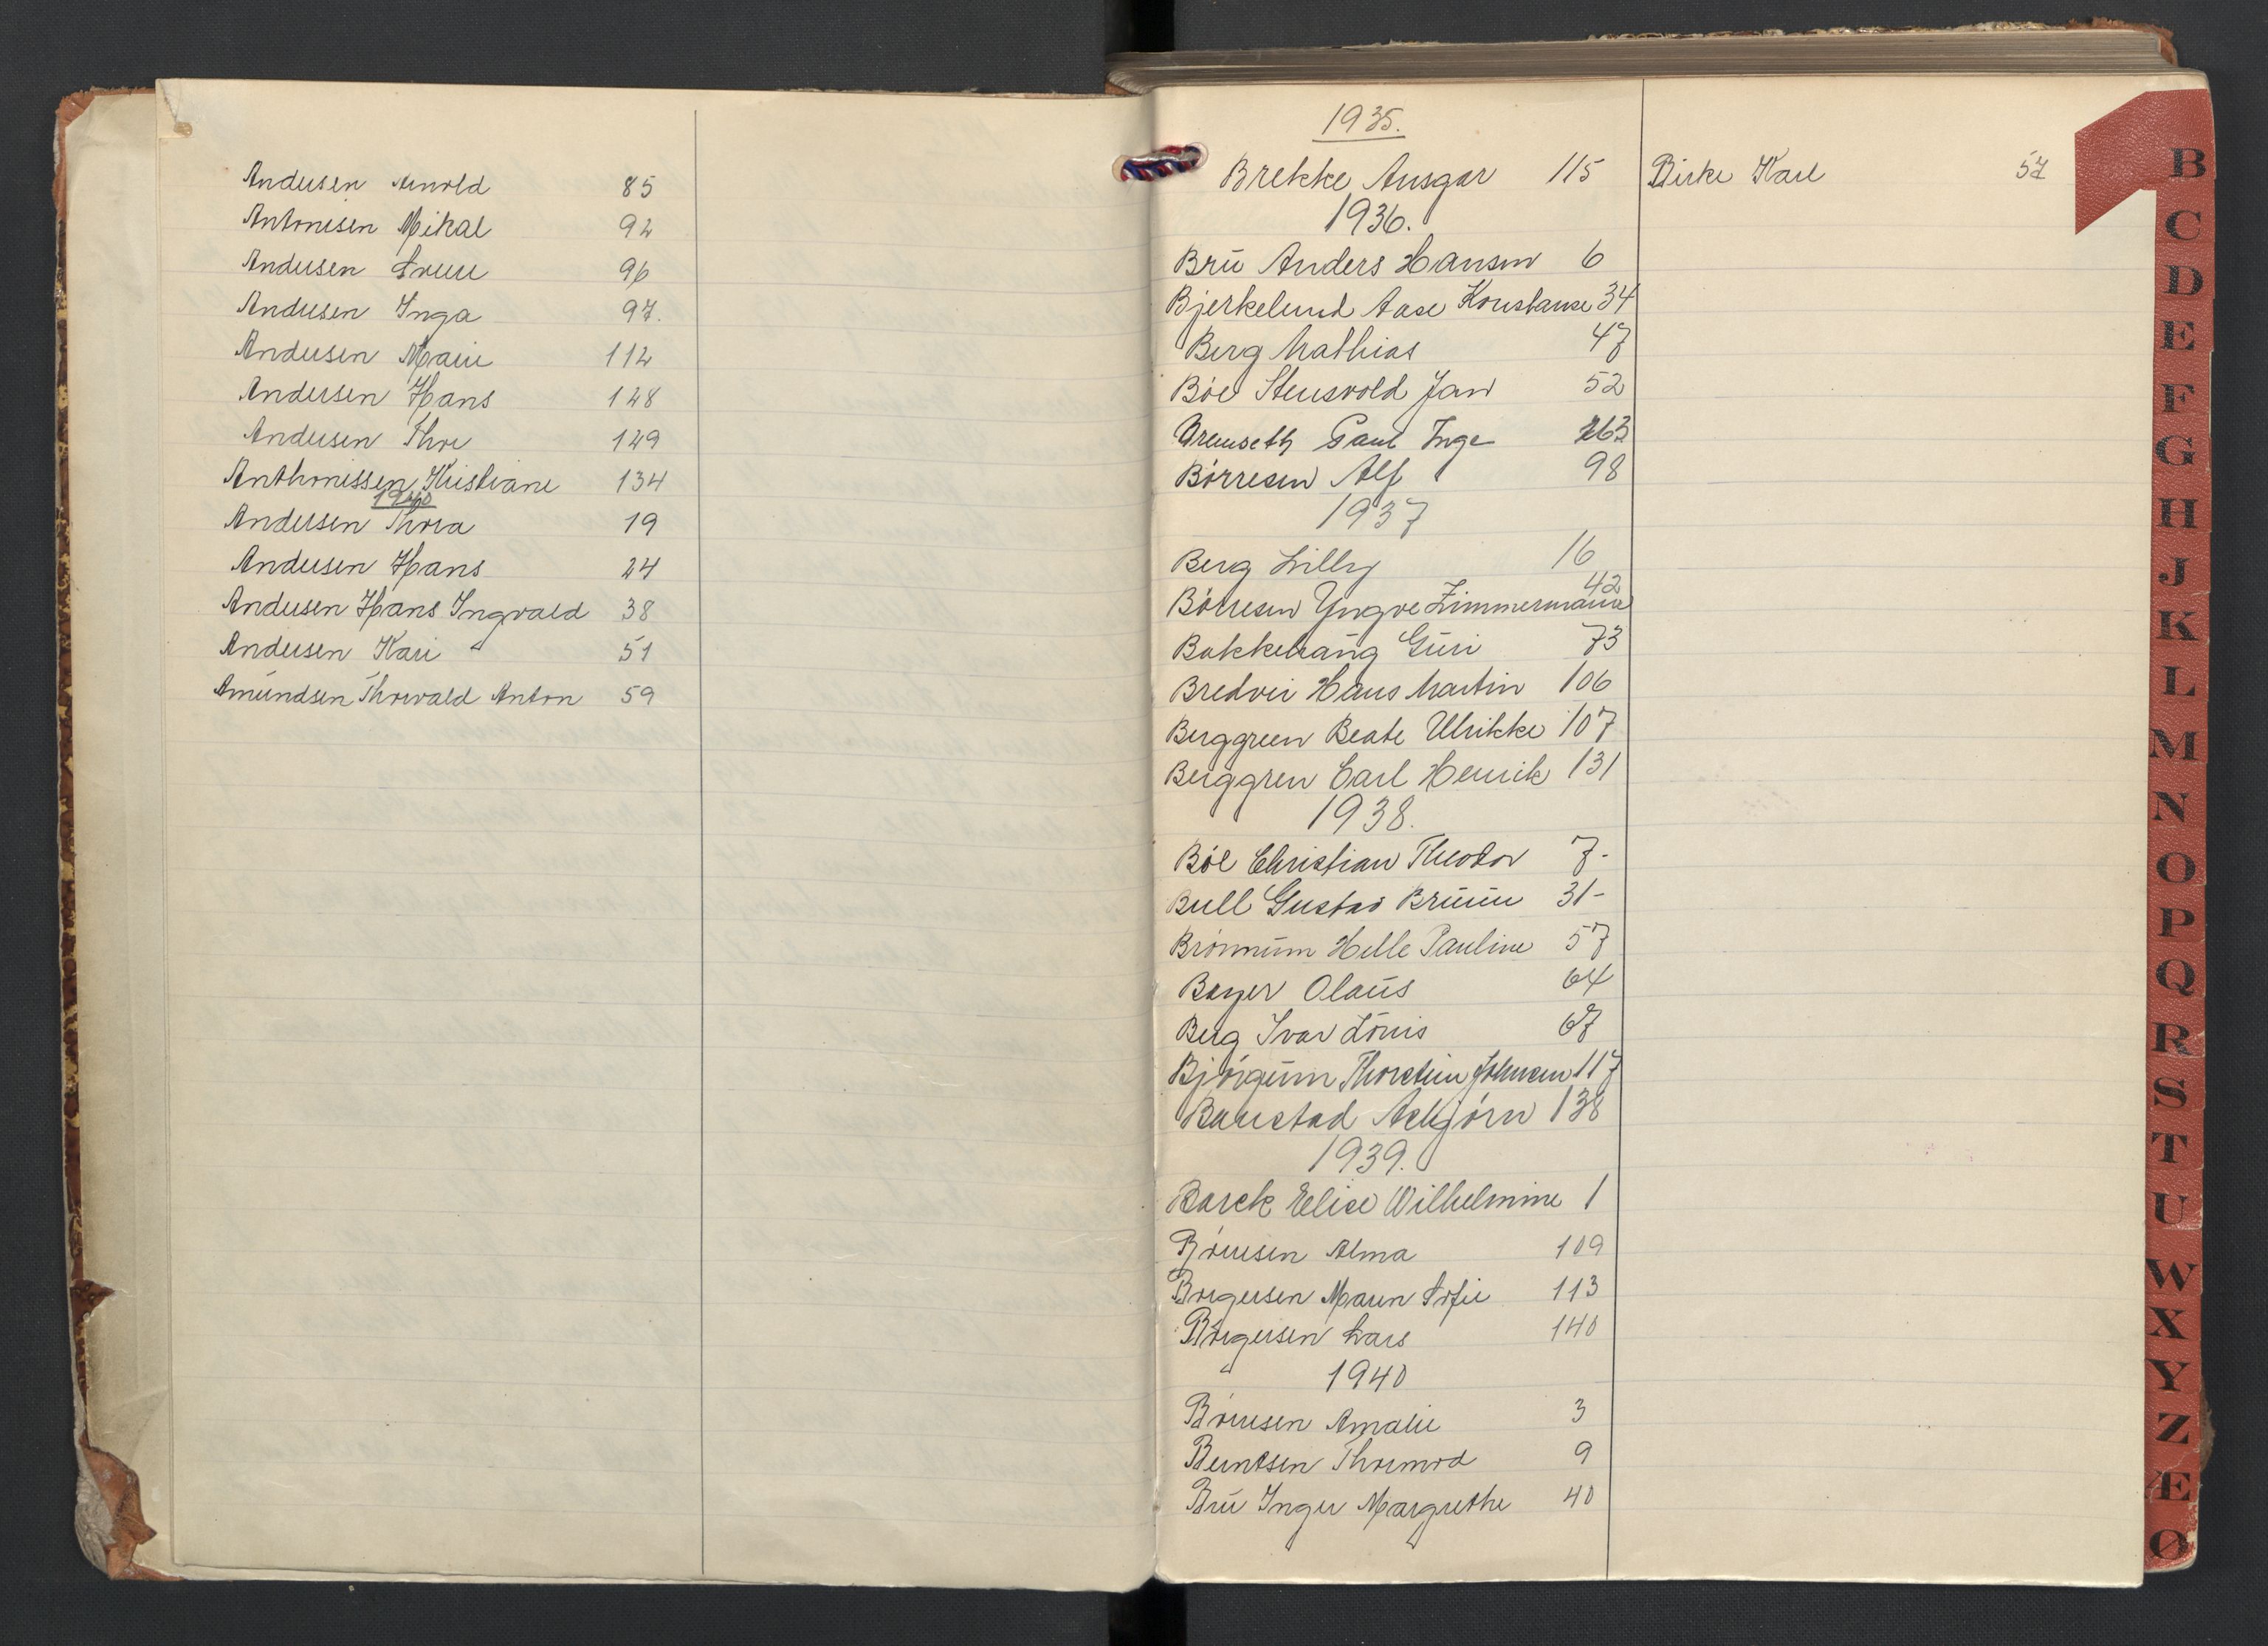 Andersen Arnold 85
Antonisen Mikal 92
Andersen Sverre 96
Andersen Inga 97.
Andersen Marie 112
Andersen Hans 128
Andersen Thore 129
Anthonissen Kristiane 134
1940
Andersen Thora 19
Andersen Hans 24
Andersen Hans Ingvald 38
Andersen Kari 51
Amundsen Thorvald Anton 59
1935.
Brekke Ansgar 115
1936.
Bru Anders Hansen 6
Bjerkelund Aase Konstanse 34
Berg Mathias 47
Böe Stensvold Jan 52
Paul Inge
Börresen Alf 98
1937
Berg Lilly 16
Börresen Yngve Zimmermann 42
Bakkehaug Guri 73
Bredvei Hans Martin 106
Berggreen Beate Ulrikke 107
Berggren Carl Henrik 131
1938.
Böe Christian Theodor 7-
Bull Gustav Bruun 31-
Brönnum Helle Pauline 57
Bayer Olaus 64
Berg Ivar Louis 67
Bjórgum Thorstein Johnsen 117
Baustad Asbjörn 138
1939.
Barck Elise Wilhelmine 1
Börresen Alma 109
Borgersen Maren Sofie 113
Borgersen Lars 140
1940
Börresen Amalie 3
Berntsen Thormod 9
Bru Inger Margrethe 40
Birke Karl 57
B
C
D
E
F
G
H
J
K
L
M
N
O
P
Q
R
S
T
U
W
X
Y
Z
Æ
Ø